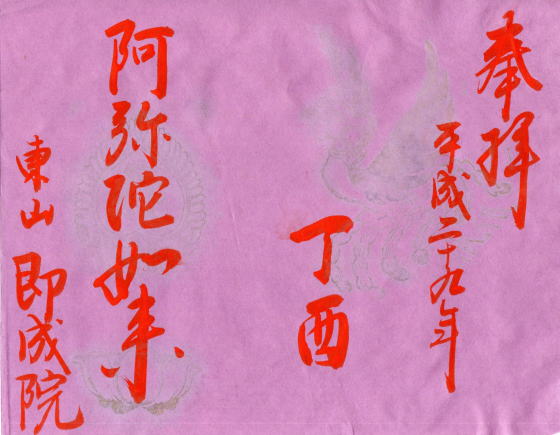 奉拝
平成二十九年
丁酉
阿弥陀如来
東山 即成院